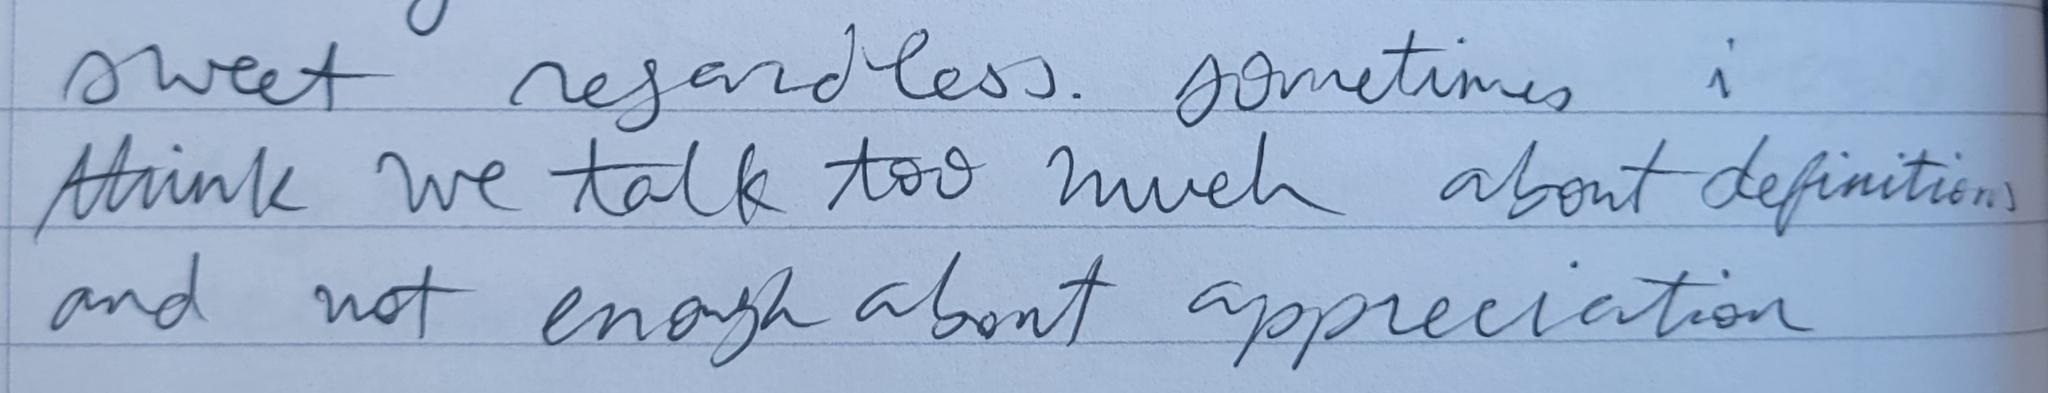 sweet regardless. sometimes i
think we talk too much about definitions
and not enough about appreciation